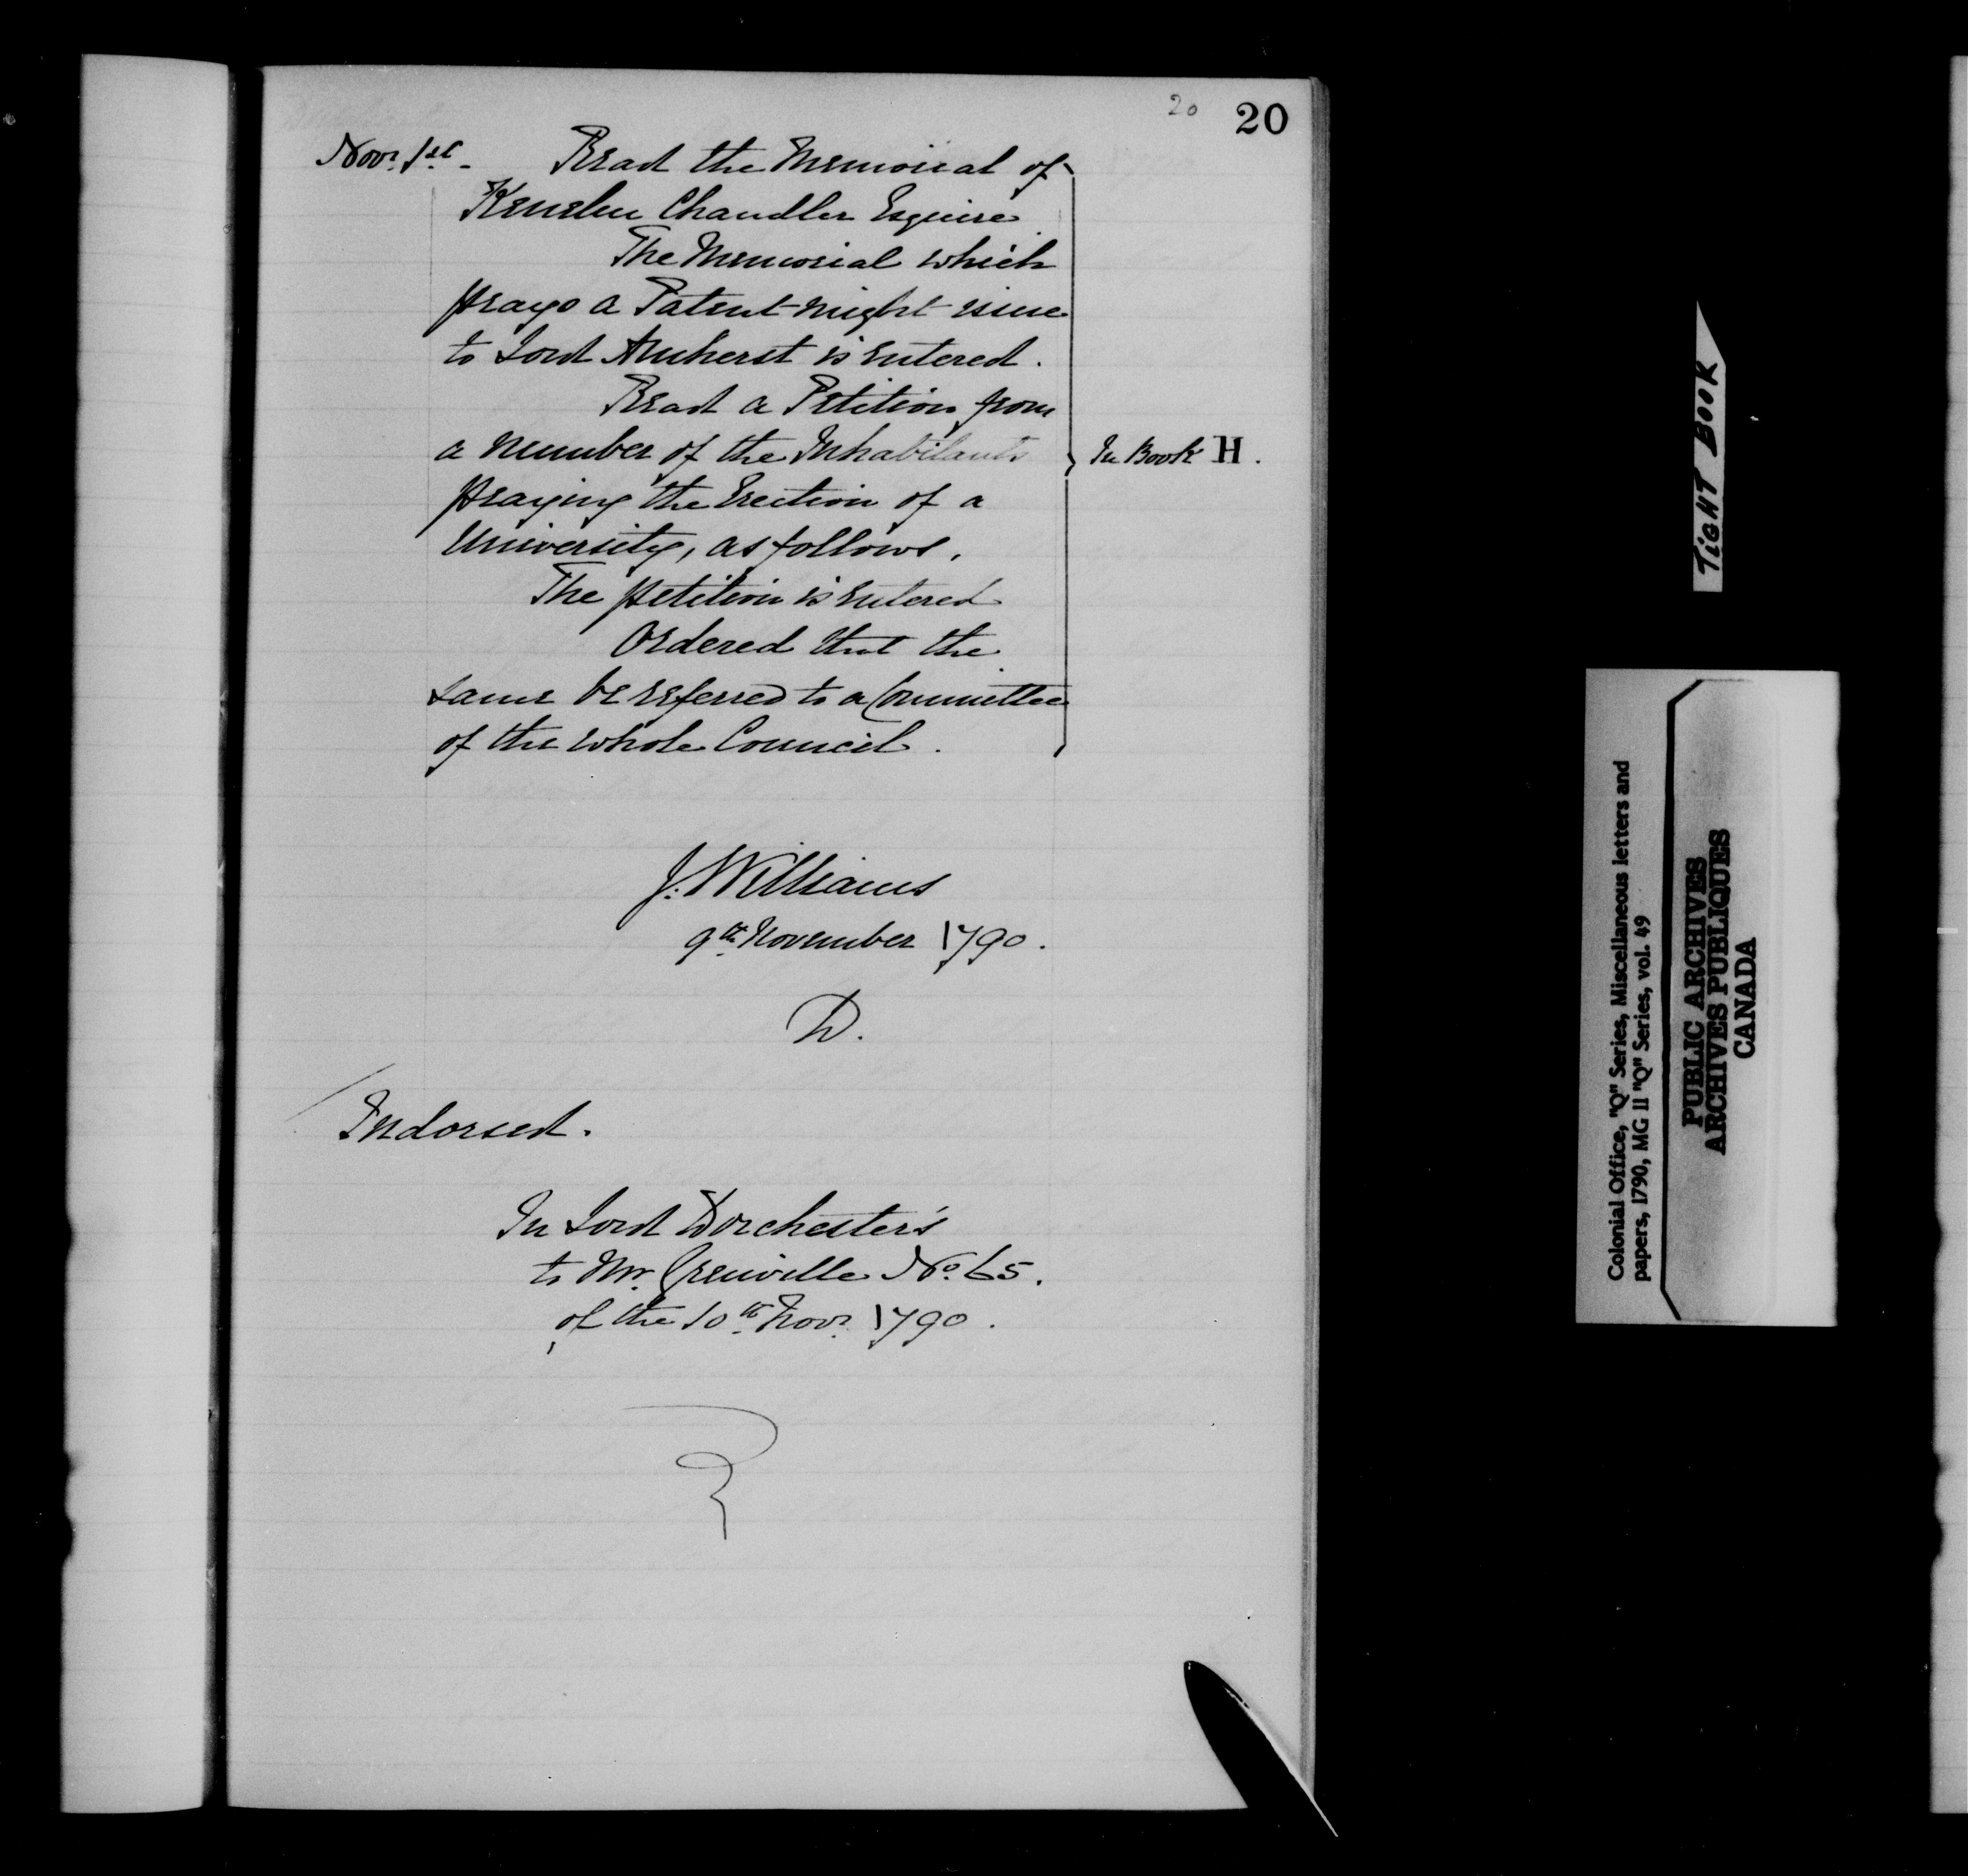 20 20
Novr. 1st - Read the Memorial of
Kenelm Chandler Esquire
The Memorial which
prays a Patent might issue
to Lord Amherst is entered.
Read a Petition from
a number of the Inhabitants
In Book H.
praying the Erection of a
University, as follows.
The petition is entered
Ordered that the
same be referred to a Committee
of the whole Council.
J. Williams
9th November 1790.
D.
Indorsed.
In Lord Dorchester's
to Mr. Grenville No. 65.
of the 10th Novr. 1790.
TIGHT BOOK
Colonial Office, "Q" Series, Miscellaneous letters and
papers, 1790, MG 11 "Q" Series, vol. 49
PUBLIC ARCHIVES
ARCHIVES PUBLIQUES
CANADA